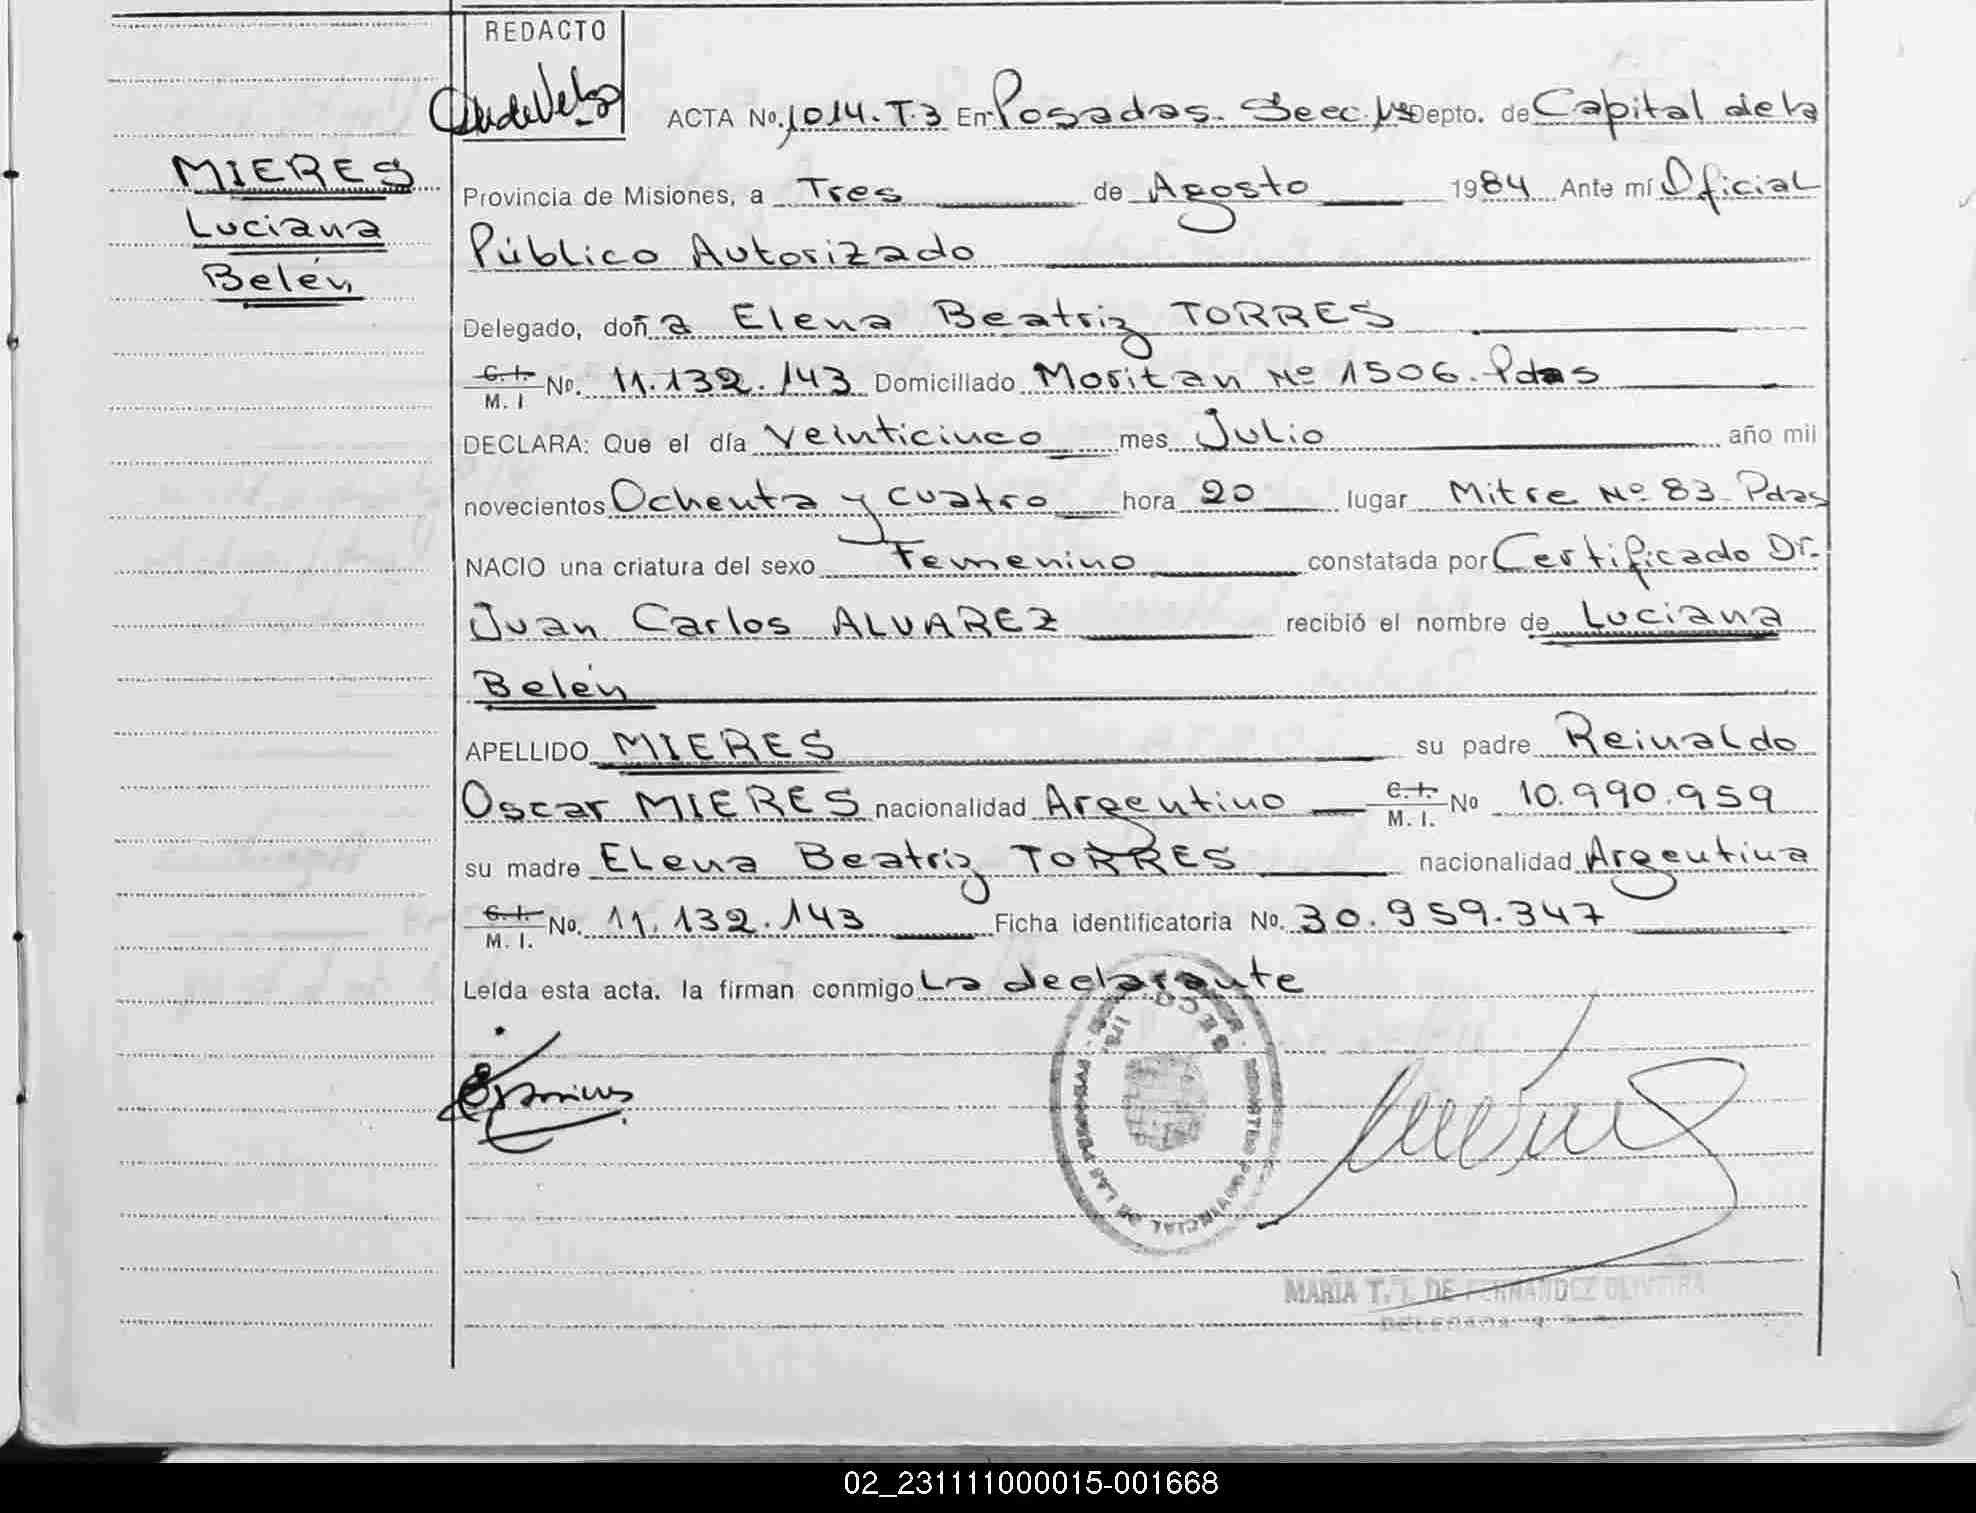 REDACTO
ACTA No. 1014. T.3 En Posadas. Secc. 1ª Depto. de Capital de la
MIERES
Luciana
Belén
Provincia de Misiones, a Tres de Agosto 1984 Ante mí Oficial
Público Autorizado
Delegado, doña Elena Beatriz TORRES
C.I. M. I No. 11.132.143 Domiciliado Moritan Nº 1506. Pdas
DECLARA: Que el día veinticinco mes Julio año mil
novecientos Ochenta y cuatro hora 20 lugar Mitre Nº 83. Pdas
NACIO una criatura del sexo Femenino constatada por Certificado Dr.
Juan Carlos ALVAREZ recibió el nombre de Luciana
Belén
APELLIDO MIERES su padre Reinaldo
Oscar MIERES nacionalidad Argentino C.I. M. I. No 10.990.959
su madre Elena Beatriz TORRES nacionalidad Argentina
C.I. M. I. No. 11.132.143 Ficha identificatoria No. 30.959.347
Leída esta acta. la firman conmigo La declarante
SECC. 1ra.
PROVINCIAL DE LAS PERSONAS
MARIA T. I. DE FERNANDEZ OLIVEIRA
02_231111000015-001668